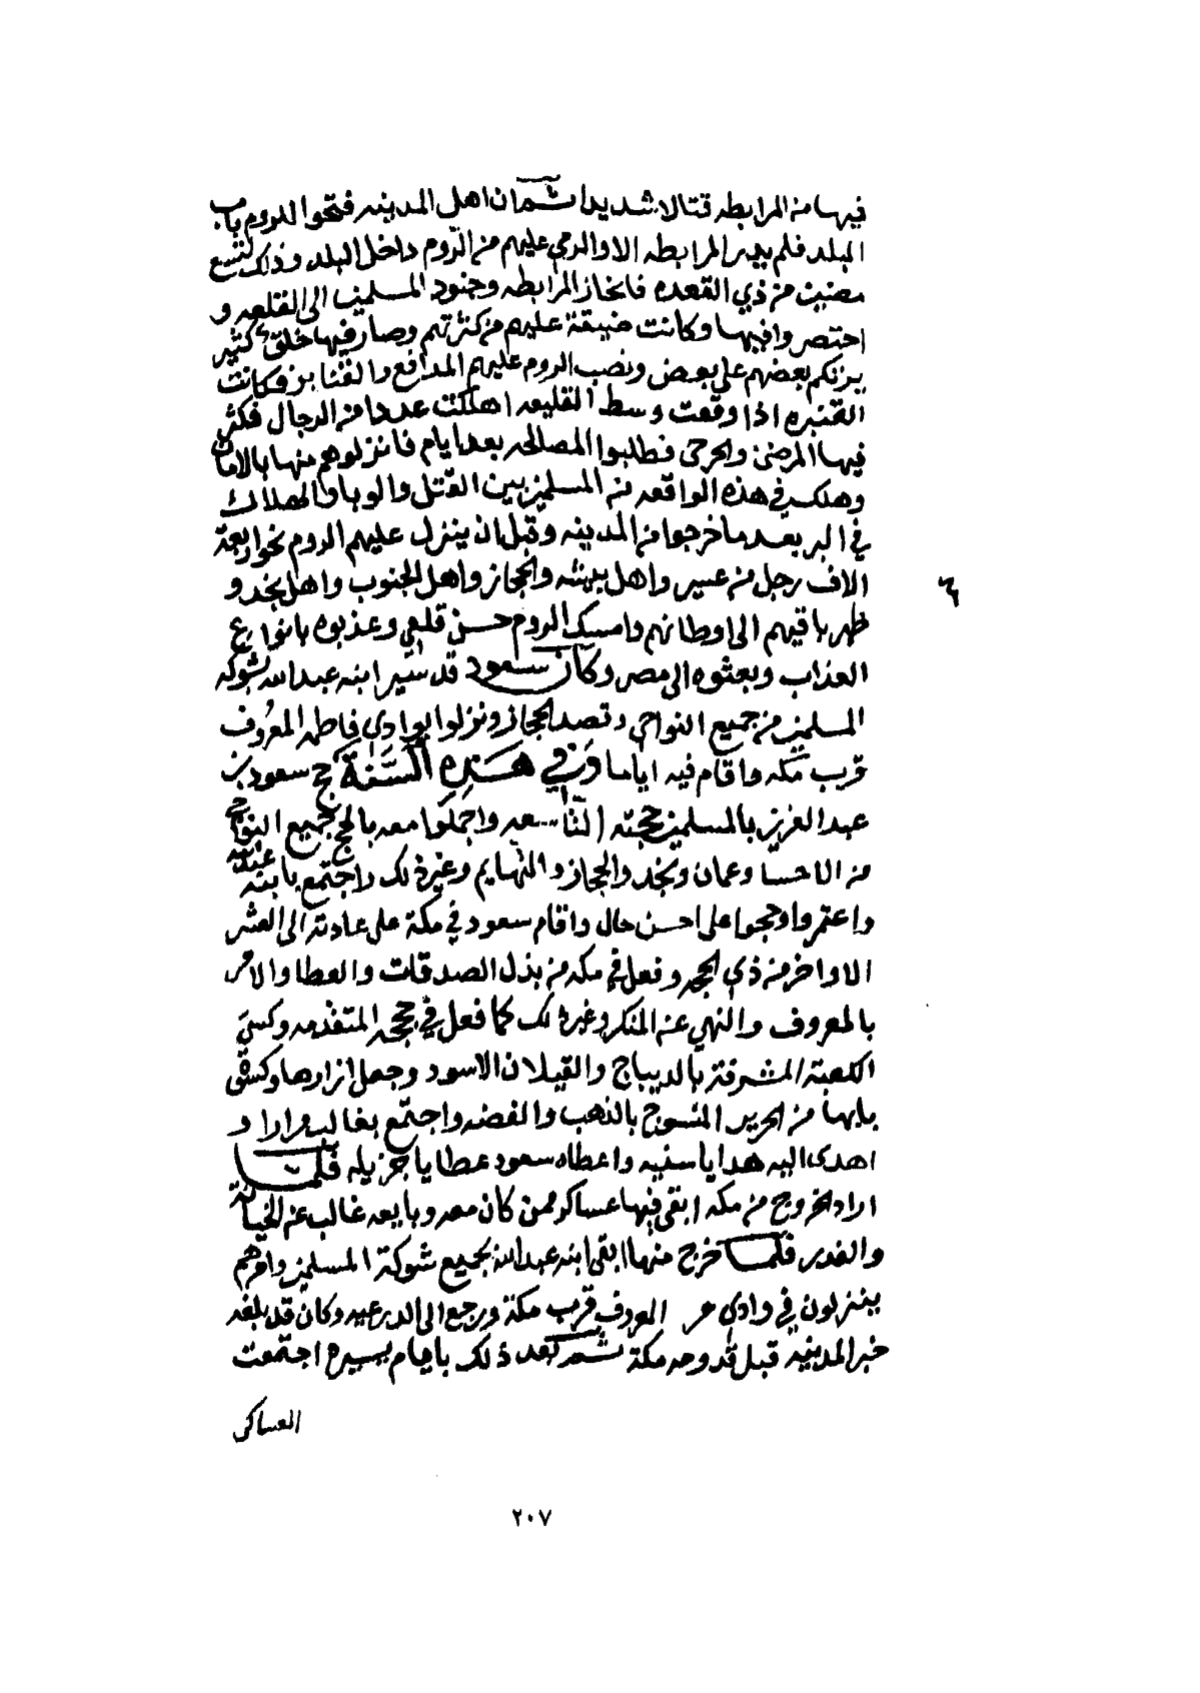 فيها من المرابطه قتالا شديدا ثم ان اهل المدينه فتحوا للروم باب
البلد فلم يدر المرابطه الا والرمي عليهم من الروم داخل البلد وذلك لتسع
مضين من ذي القعده فانحاز المرابطه وجنود المسلمين الى القلعه و
احتصروا فيها وكانت ضيقة عليهم من كثرتهم وصار فيها خلق كثير
يزتكم بعضهم على بعض ونصب الروم عليهم المدافع والقنابز فكانت
القنبره اذا وقعت وسط القليعه اهلكت عددا من الرجال فكثر
فيها المرضى والجرحى فطلبوا المصالحه بعد ايام فانزلوهم منها بالامان
وهلك في هذه الواقعه من المسلمين بين القتل والوبا والهلاك
في البر بعد ما خرجوا من المدينه وقبل ان ينزل عليهم الروم نحو اربعة
الاف رجل من عسير واهل بيشه والحجاز واهل الجنوب واهل نجد و
ظهر باقيهم الى اوطانهم وامسك الروم حسن قلعي وعذبوه بانواع
العذاب وبعثوه الى مصر وكان سعود قد سير ابنه عبد الله بشوكه
المسلمين من جميع النواحي وقصد الحجاز ونزلوا بوادي فاطمه المعروف
قرب مكه واقام فيه اياما وفي هذه السنة حج سعود بن
عبد العزيز بالمسلمين حجته التاسعه واجملوا معه بالحج جميع النواحي
من الاحسا وعمان ونجد والحجاز والتهايم وغير ذلك واجتمع بابنه عبد الله
واعتمروا وحجوا على احسن حال واقام سعود في مكة على عادته الى العشر
الاواخر من ذي الحجه وفعل في مكه من بذل الصدقات والعطا والامر
بالمعروف والنهي عن المنكر وغير ذلك كما فعل في حججه المتقدمه وكسى
الكعبة المشرفة بالديباج والقيلان الاسود وجعل ازارها وكسوة
بابها من الحرير المنسوج بالذهب والفضه واجتمع بغالب مرارا و
اهدى اليه هدايا سنيه واعطاه سعود عطايا جزيله فلما
اراد الخروج من مكه ابقى فيها عساكر ممن كان معه وبايعه غالب عن الخيانة
والغدر فلما خرج منها ابقى ابنه عبد الله بجميع شوكة المسلمين وامرهم
ينزلون في وادي مر المعروف قرب مكة ورجع الى الدرعيه وكان قد بلغه
خبر المدينه قبل قدومه مكة ثم بعد ذلك بايام يسيره اجتمعت
العساكر
٢٠٧